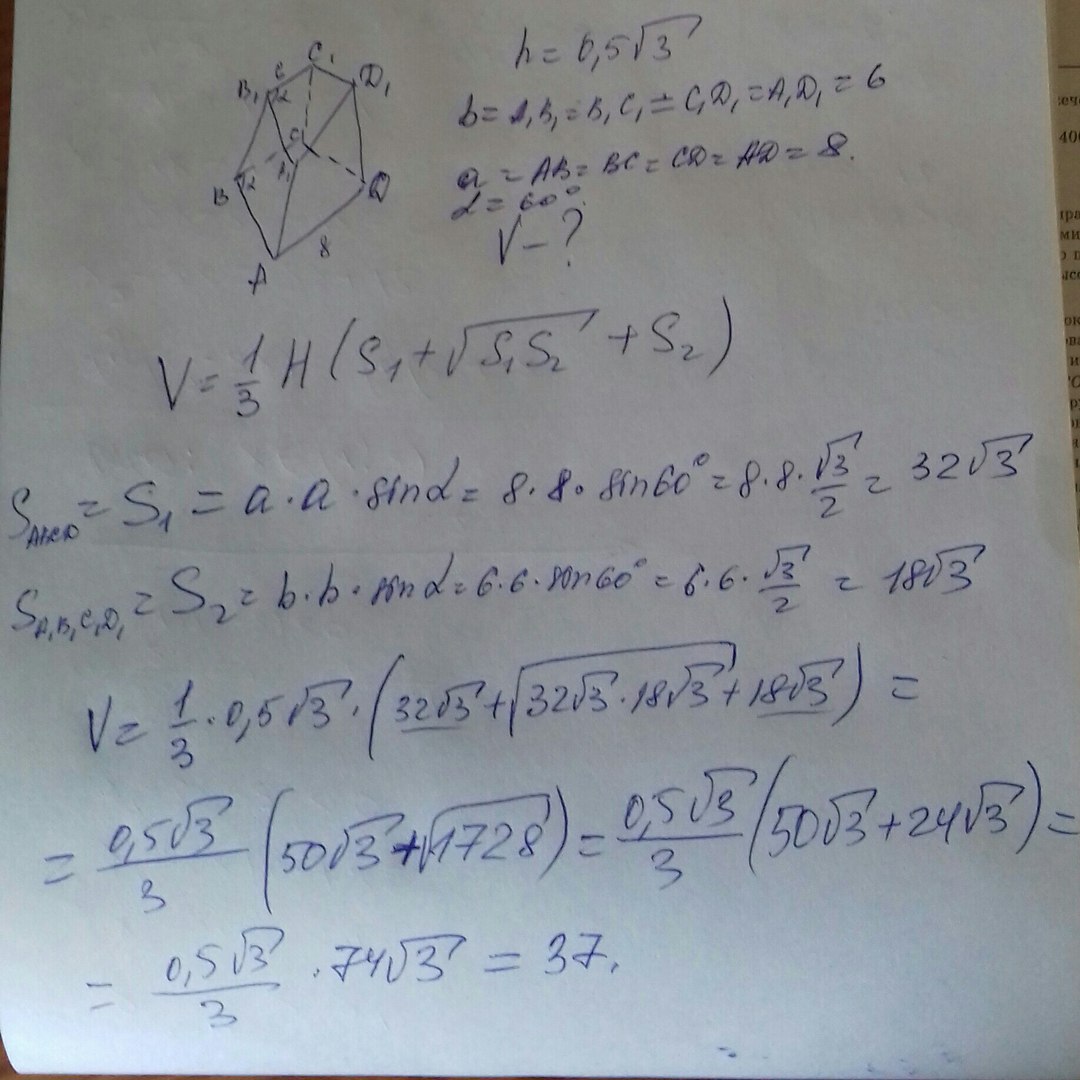 C₁
6
B₁
D₁
α
C
A₁
B
α
D
8
A
h = 0,5√3
b = A₁B₁ = B₁C₁ = C₁D₁ = A₁D₁ = 6
a = AB = BC = CD = AD = 8.
α = 60°.
V - ?
V = 1/3 H (S₁ + √(S₁S₂) + S₂)
S_ABCD = S₁ = a · a · sinα = 8 · 8 · sin60° = 8 · 8 · √3/2 = 32√3
S_A₁B₁C₁D₁ = S₂ = b · b · sinα = 6 · 6 · sin60° = 6 · 6 · √3/2 = 18√3
V = 1/3 · 0,5√3 · (32√3 + √(32√3 · 18√3) + 18√3) =
= 0,5√3/3 (50√3 + √1728) = 0,5√3/3 (50√3 + 24√3) =
= 0,5√3/3 · 74√3 = 37.